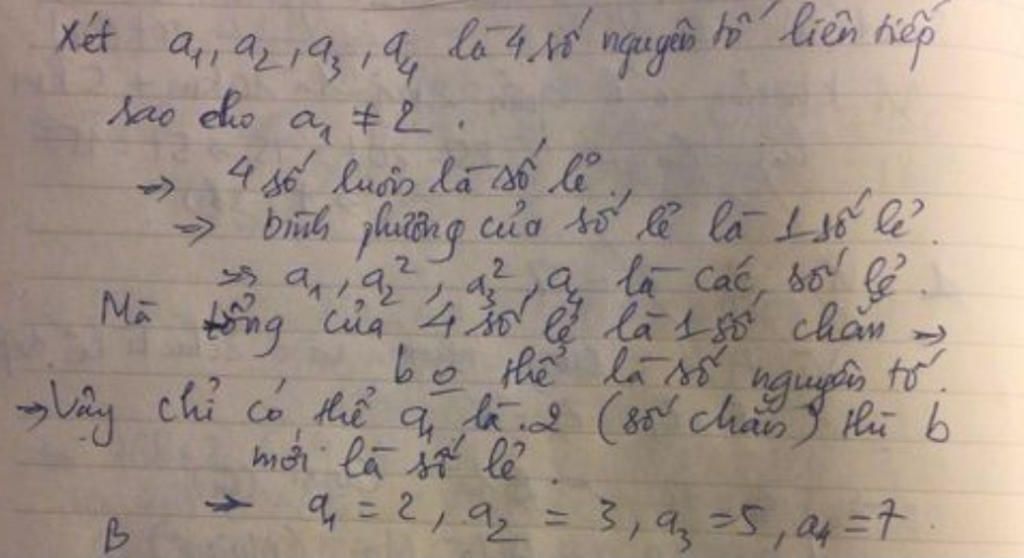 Xét a₁, a₂, a₃, a₄ là 4 số nguyên tố liên tiếp
sao cho a₁ ≠ 2.
=> 4 số luôn là số lẻ.
=> bình phương của số lẻ là 1 số lẻ.
=> a₁, a₂², a₃², a₄ là các số lẻ.
Mà tổng của 4 số lẻ là 1 số chẵn →
b o thể là số nguyên tố.
→ Vậy chỉ có thể a₁ là 2 (số chẵn) thì b
mới là số lẻ.
→ a₁ = 2, a₂ = 3, a₃ = 5, a₄ = 7.
B